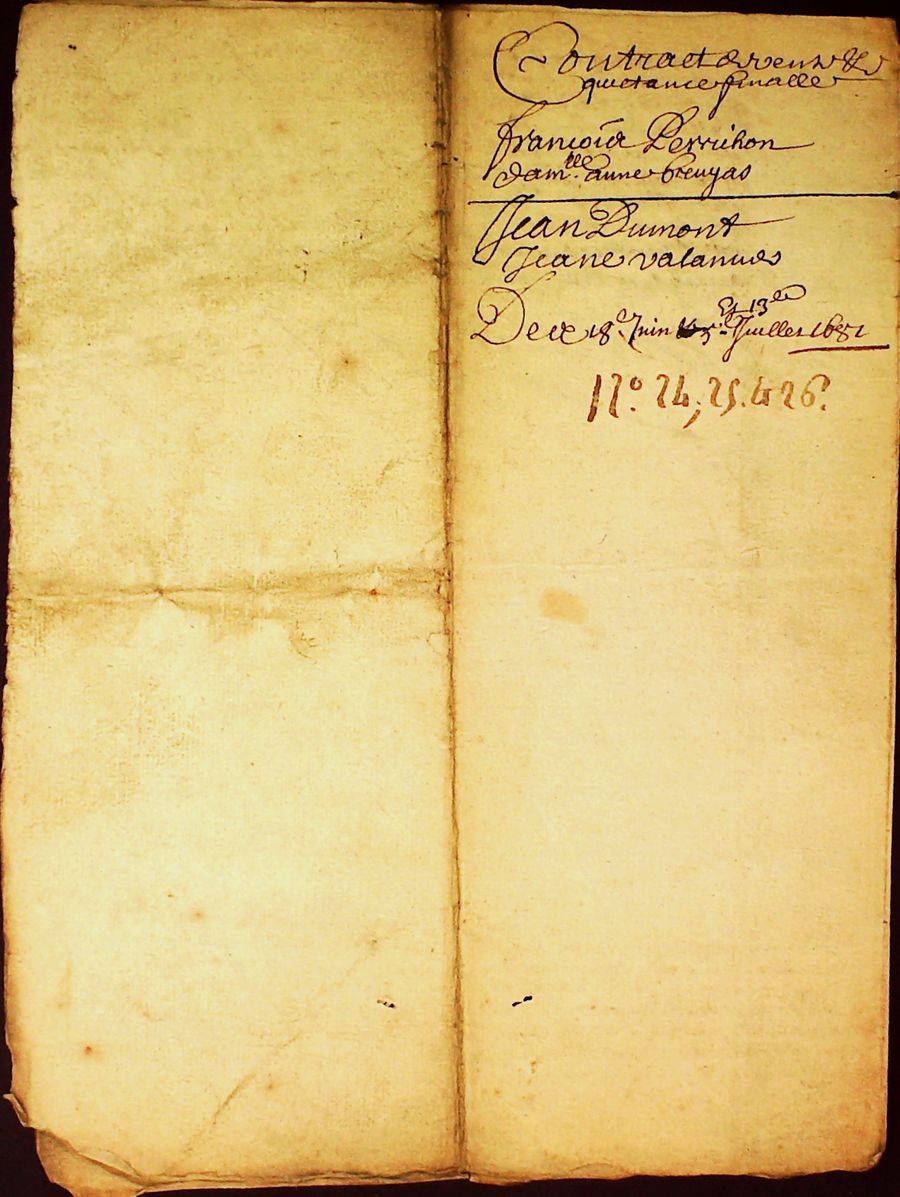 Contract de vente &
quictance finalle
françois Perrichon
dam.lle anne breuyas
Jean Dumont
Jeane valanuds
Et 13e
De ce 18e Juin 5e Juillet 1681
No. 24, 25. & 26.